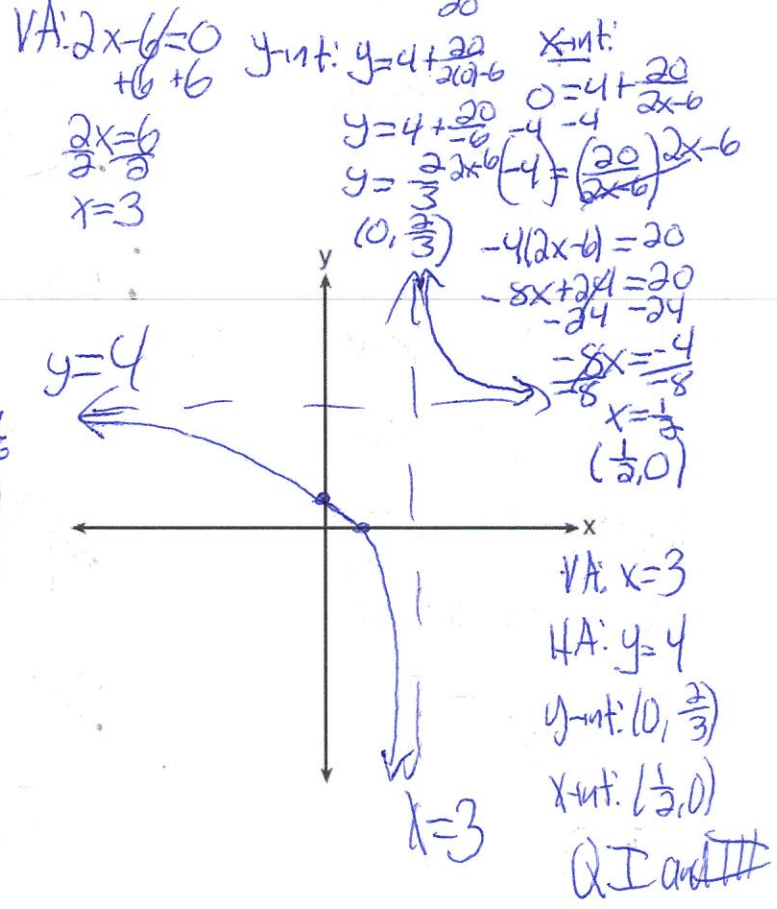 20
VA: 2x-6=0
+6 +6
2x=6
2 2
x=3
y-int: y=4+20/2(0)-6
y=4+20/-6
y=2/3
(0, 2/3)
x-int:
0=4+20/2x-6
-4 -4
2x-6(-4)=(20/2x-6)2x-6
-4(2x-6)=20
-8x+24=20
-24 -24
-8x=-4
-8 -8
x=1/2
(1/2,0)
y
y=4
x
VA: x=3
HA: y=4
y-int: (0, 2/3)
x-int: (1/2,0)
x=3
QI and III